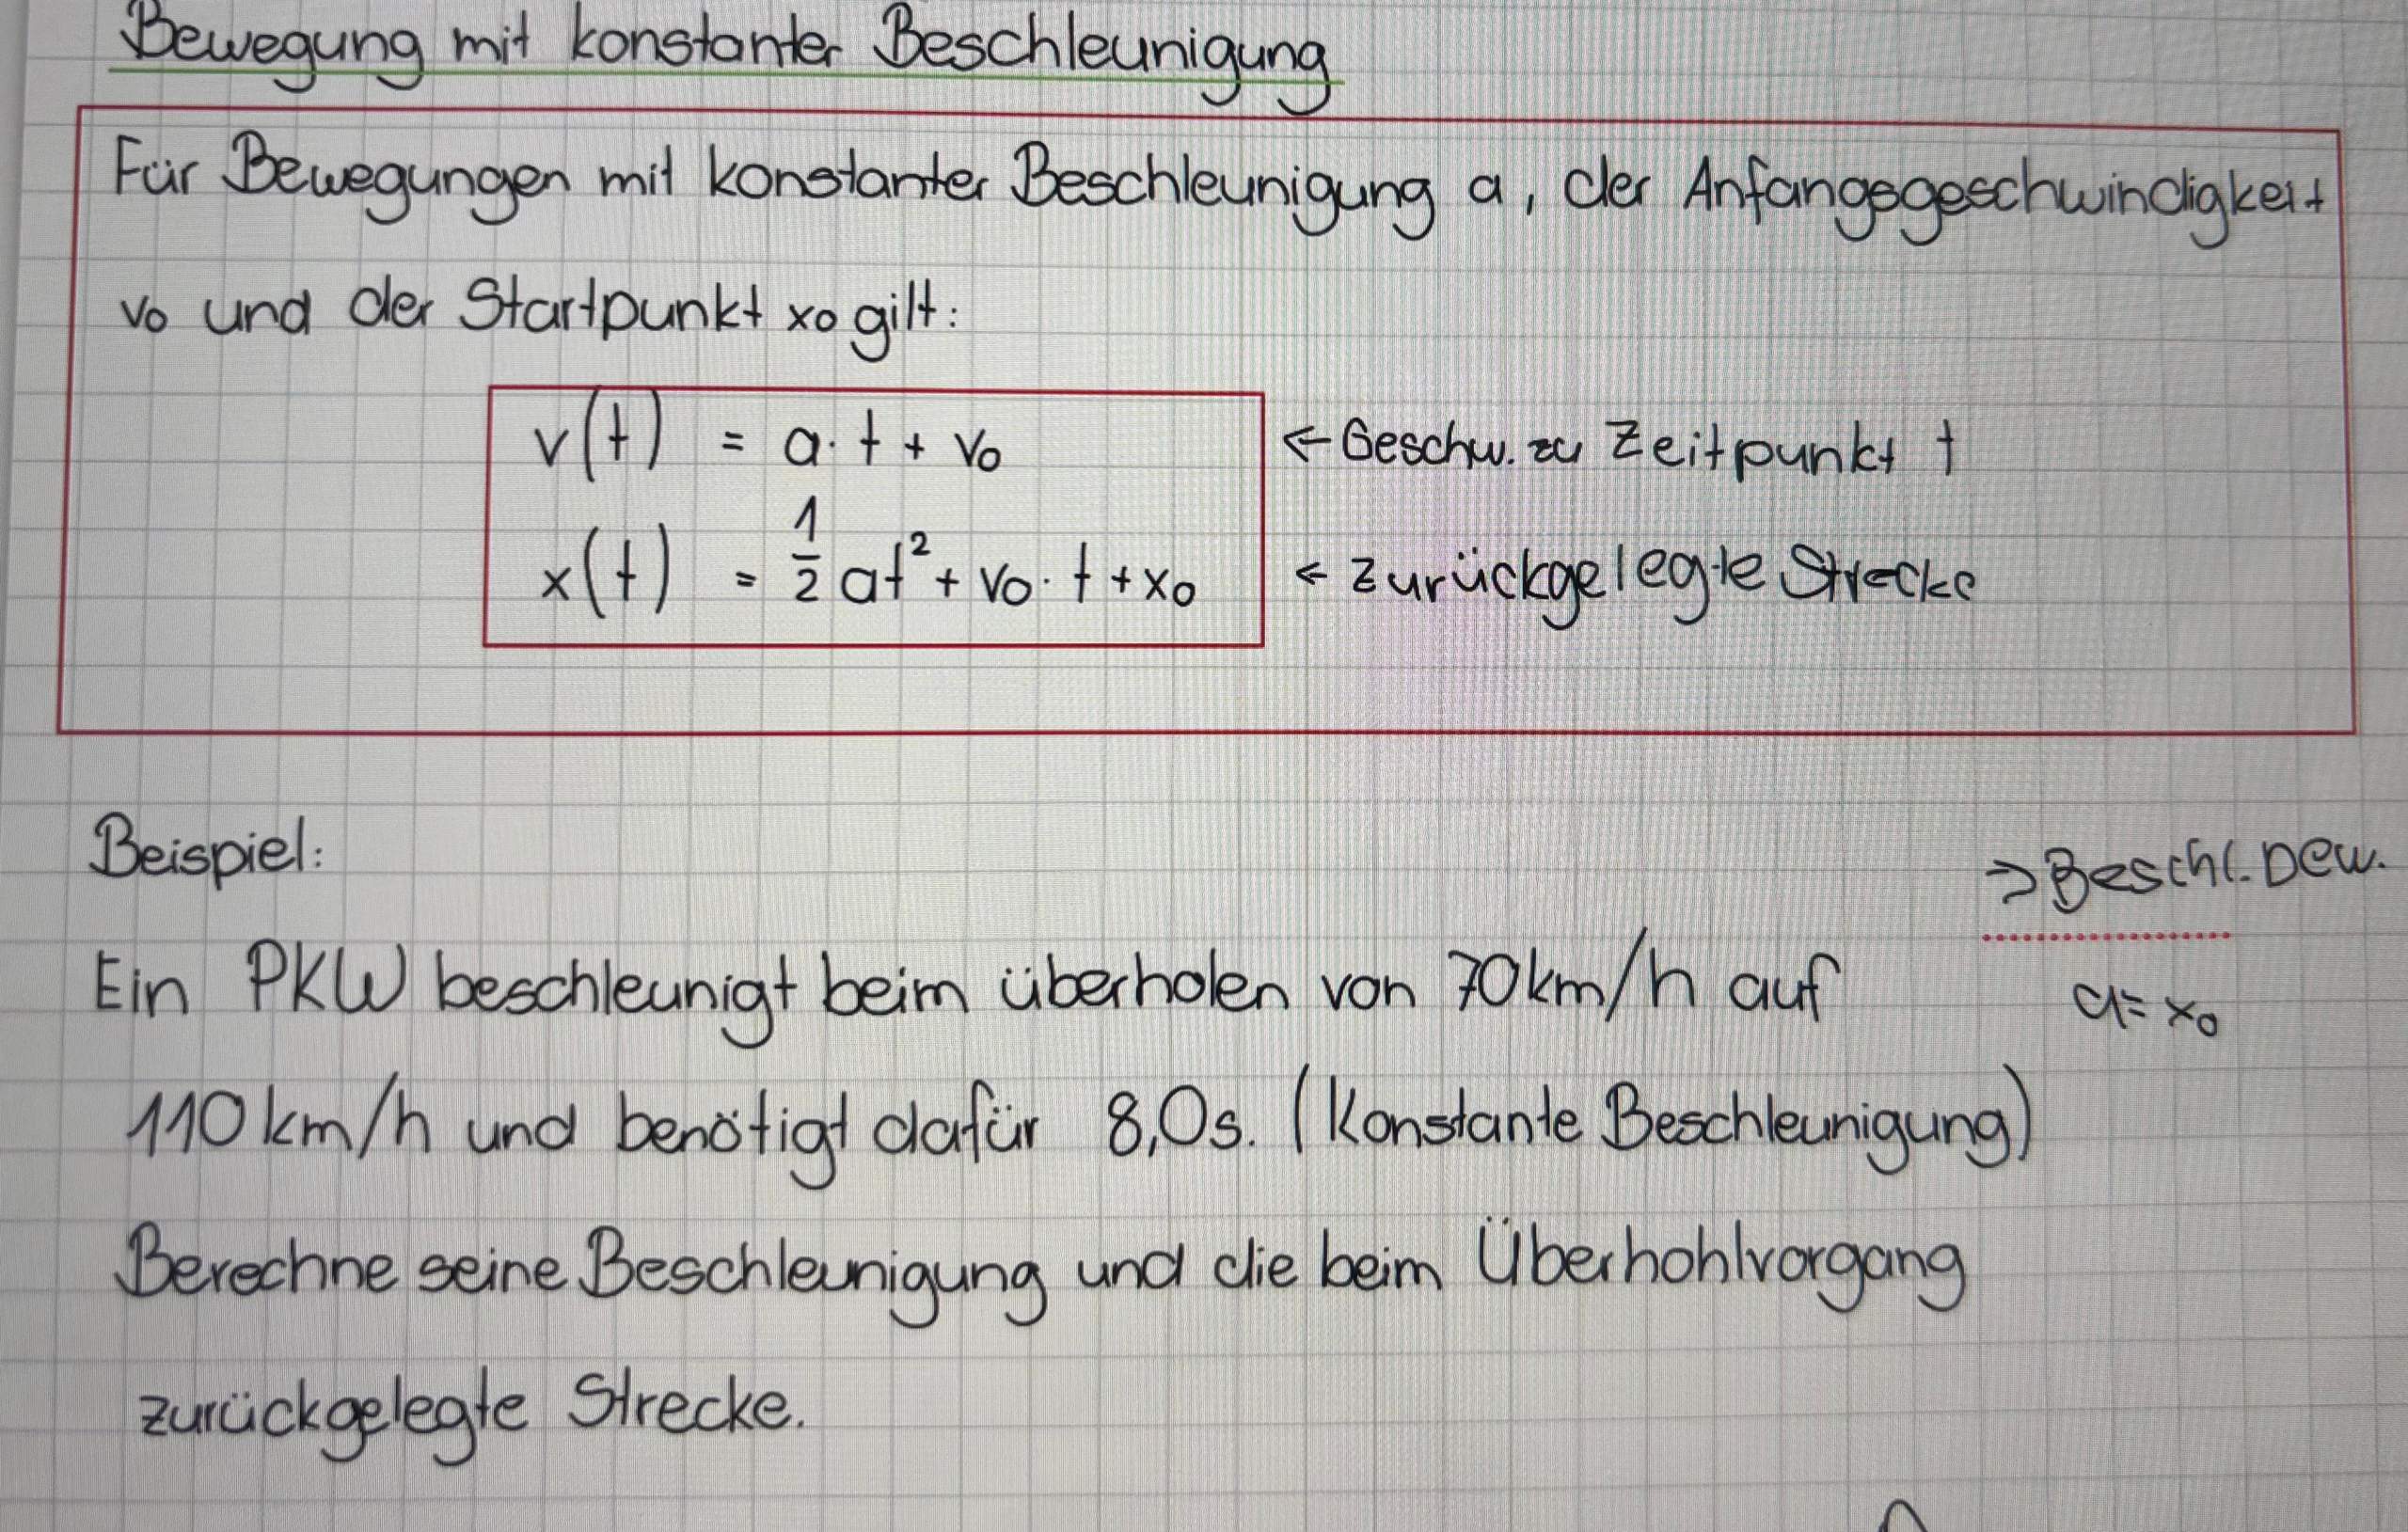 Bewegung mit konstanter Beschleunigung
Für Bewegungen mit konstanter Beschleunigung a, der Anfangsgeschwindigkeit
v0 und der Startpunkt x0 gilt:
v(t) = a · t + v0 ← Geschw. zu Zeitpunkt t
x(t) = 1/2 at² + v0 · t + x0 ← zurückgelegte Strecke
Beispiel:
⇒ Beschl. Bew.
Ein PKW beschleunigt beim überholen von 70km/h auf
a = x0
110km/h und benötigt dafür 8,0s. (Konstante Beschleunigung)
Berechne seine Beschleunigung und die beim Überhohlvorgang
zurückgelegte Strecke.